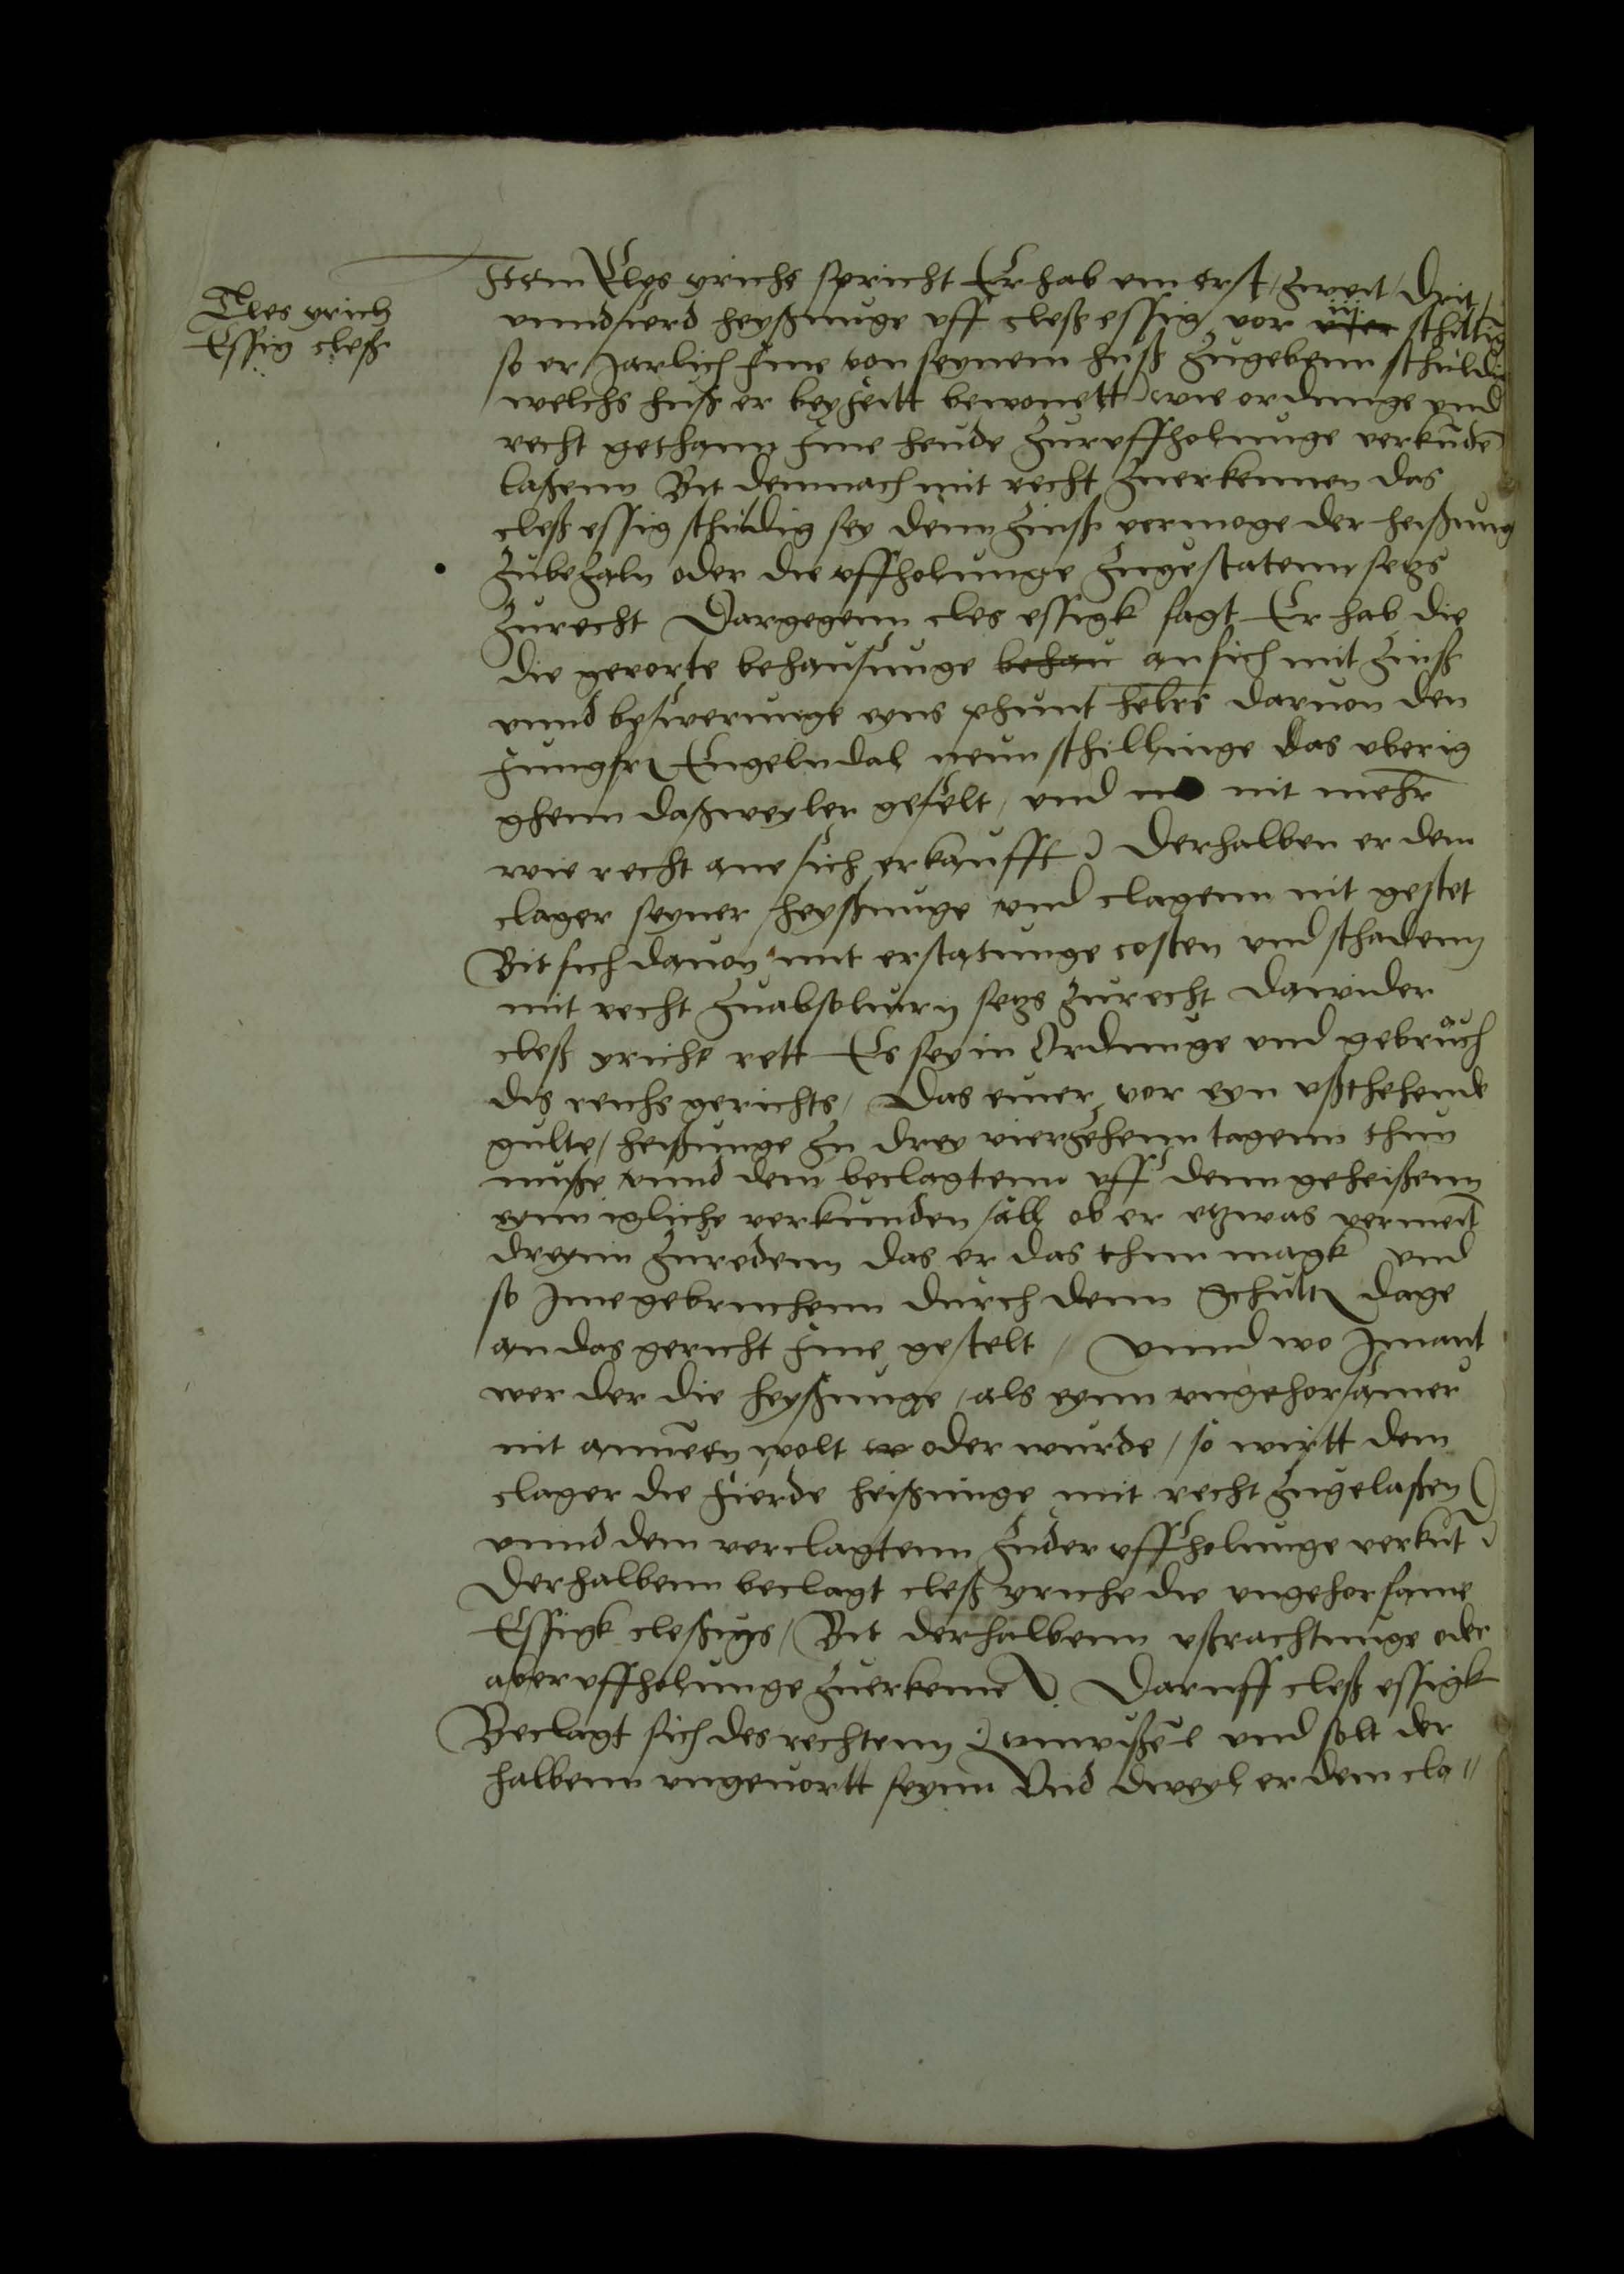 Cles yrich
Essig cleß
Item Cles yrichs spricht Er hab ein erst, zweit, drit,
unnd fierd heyßunge uff cleß essig vor schillig
so er Jarlich Ime von seynem huß zugebenn schuldig
welchs huß er beyheitt bewonett wie ordnunge und
recht gethann Ime heude zur uffholunge verkunde
laßenn Bit demnach mit recht zuerkennen das
cleß essig schuldig sey denn Zinß vermoge der heißung
Zubezaln oder die uffholunge zugestatenn setzs
zurecht Dargegenn cles essigk sagt Er hab die
die gerorte behausunge behau an sich mit Zinß
unnd beswerunge eyns phunt helrs daruon den
Jungfr Engelndal neun schillinge das uberig
ghenn daßweyler gefelt, und nit mehr
wie recht ane sich erkaufft Derhalben er dem
clager seyner heyßunge und clagenn nit gestet
Bit sich dauon mit erstatunge costen und schadenn
mit recht zuabsoluirn setzs zurecht dawider
cleß yrichs rett Es sey in Ordnunge und gebruch
dis reichs gerichts, Das einer vor eyn ußthehende
gulte, heißunge zu drey vierzehenn tagenn thun
muße unnd dem beclagtenn uff denn geheißenn
eynn igliche verkunden sall ob er etzwas vermeit
dreynn zuredenn das er das thun magk und
so Ime gebruchenn durch denn Schult dage
an das gericht Ime gestelt, Unnd wo Imant
wer der die heyßunge, als eynn ungehorsamer
nit annemen wolt oder wurde, so wirtt dem
clager die fierde heißunge mit recht zugelaßen
unnd dem verclagtenn zu der uffholunge verkut
Derhalbenn beclagt cleß yrichs die ungehorsame
Essigk cleßigs, Bit derhalbenn ußrachtunge oder
aber uffholunge zuerkenne Daruff cleß essigk
Beclagt sich des rechtenn und solt der
halbenn ungeuortt seynn Und dweyl er dem cla"